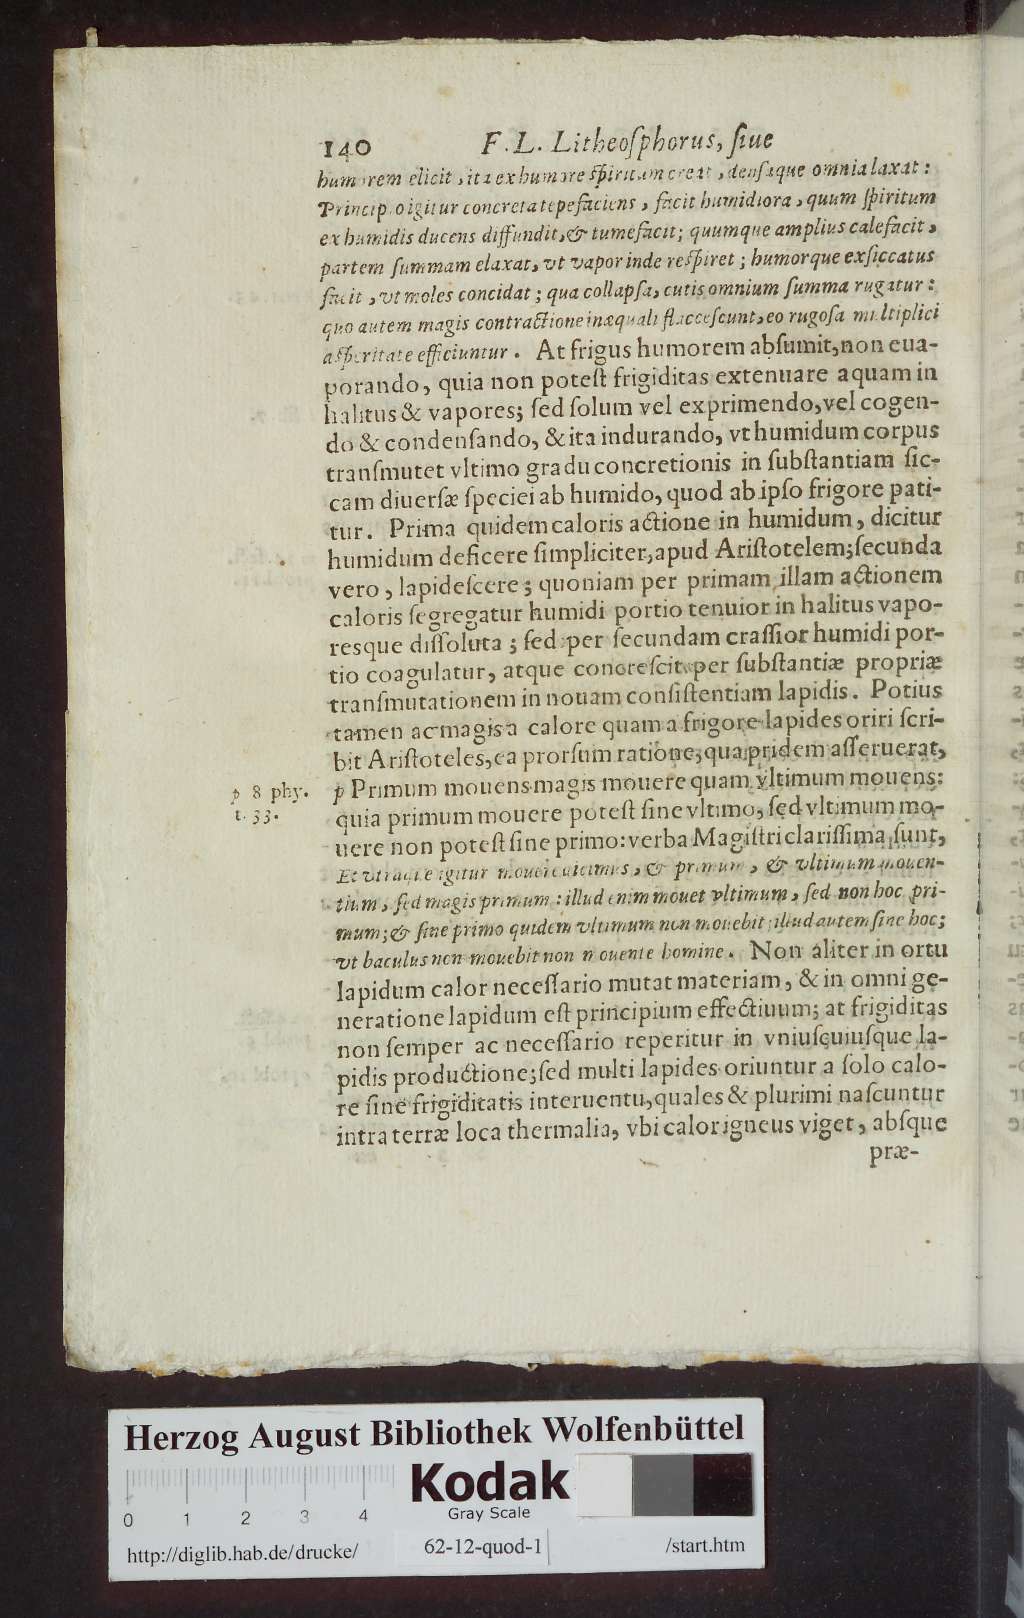 140 F. L. Litheoſphorus, ſiue
humorem elicit, ita ex humore ſpiritum creat, denſaque omnia laxat:
Principio igitur concreta tepefaciens, facit humidiora, quum ſpiritum
ex humidis ducens diffundit, & tumefacit; quumque amplius calefacit,
partem ſummam elaxat, vt vapor inde reſpiret; humorque exſiccatus
facit, vt moles concidat; qua collapſa, cutis omnium ſumma rugatur:
quo autem magis contractione inæquali flacceſcunt, eo rugoſa multiplici
aſperitate efficiuntur. At frigus humorem abſumit, non eua-
porando, quia non poteſt frigiditas extenuare aquam in
halitus & vapores; ſed ſolum vel exprimendo, vel cogen-
do & condenſando, & ita indurando, vt humidum corpus
tranſmutet vltimo gradu concretionis in ſubſtantiam ſic-
cam diuerſæ ſpeciei ab humido, quod ab ipſo frigore pati-
tur. Prima quidem caloris actione in humidum, dicitur
humidum deficere ſimpliciter, apud Ariſtotelem; ſecunda
vero, lapideſcere; quoniam per primam illam actionem
caloris ſegregatur humidi portio tenuior in halitus vapo-
resque diſſoluta; ſed per ſecundam craſſior humidi por-
tio coagulatur, atque concreſcit per ſubſtantiæ propriæ
tranſmutationem in nouam conſiſtentiam lapidis. Potius
tamen ac magis a calore quam a frigore lapides oriri ſcri-
bit Ariſtoteles, ea prorſum ratione, qua pridem aſſeruerat,
p 8 phy. p Primum mouens magis mouere quam vltimum mouens:
t. 33. quia primum mouere poteſt ſine vltimo, ſed vltimum mo-
uere non poteſt ſine primo: verba Magiſtri clariſſima ſunt,
Et vtraque igitur mouere dicimus, & primum, & vltimum mouen-
tium, ſed magis primum: illud enim mouet vltimum, ſed non hoc pri-
mum; & ſine primo quidem vltimum non mouebit; illud autem ſine hoc;
vt baculus non mouebit non mouente homine. Non aliter in ortu
lapidum calor neceſſario mutat materiam, & in omni ge-
neratione lapidum eſt principium effectiuum; at frigiditas
non ſemper ac neceſſario reperitur in vniuſcuiuſque la-
pidis productione; ſed multi lapides oriuntur a ſolo calo-
re ſine frigiditatis interuentu, quales & plurimi naſcuntur
intra terræ loca thermalia, vbi calor igneus viget, abſque
præ-
Herzog August Bibliothek Wolfenbüttel
Kodak
Gray Scale
0 1 2 3 4
http://diglib.hab.de/drucke/ 62-12-quod-1 /start.htm